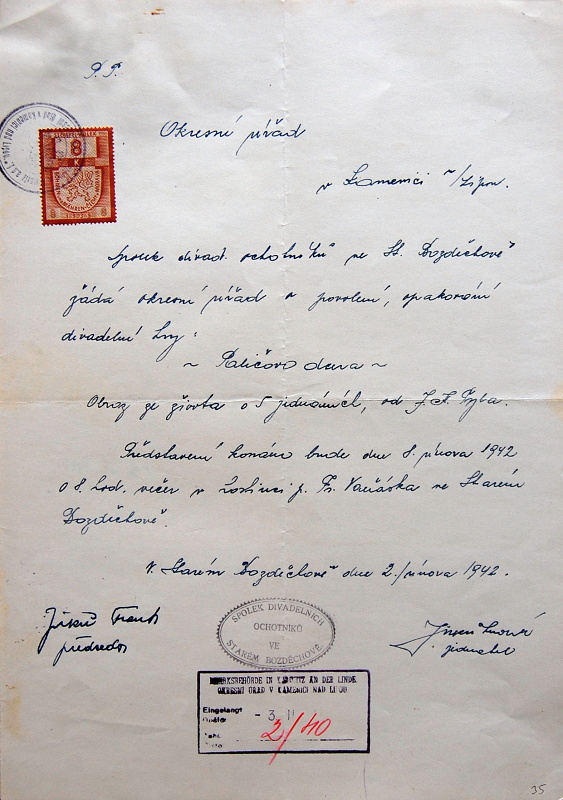 P. T.
Okresní úřad
v Kamenici n/Lipou.
Spolek divad. ochotníků ve St. Bozděchově
žádá okresní úřad o povolení, opakování
divadelní hry:
~ Paličova dcera ~
Obraz ze života o 5 jednáních, od J. K. Tyla.
Představení konáno bude dne 8. února 1942
o 8. hod. večer v hostinci p. Fr. Vaňáska ve Starém
Bozděchově.
V Starém Bozděchově dne 2./února 1942.
předseda
jednatel
SPOLEK DIVADELNÍCH
OCHOTNÍKŮ
VE
STARÉM BOZDĚCHOVĚ
BEZIRKSBEHÖRDE IN KAMNITZ AN DER LINDE
OKRESNÍ ÚŘAD V KAMENICI NAD LIPOU
Eingelangt
- 3. II
2/40
8
K
8 8
35